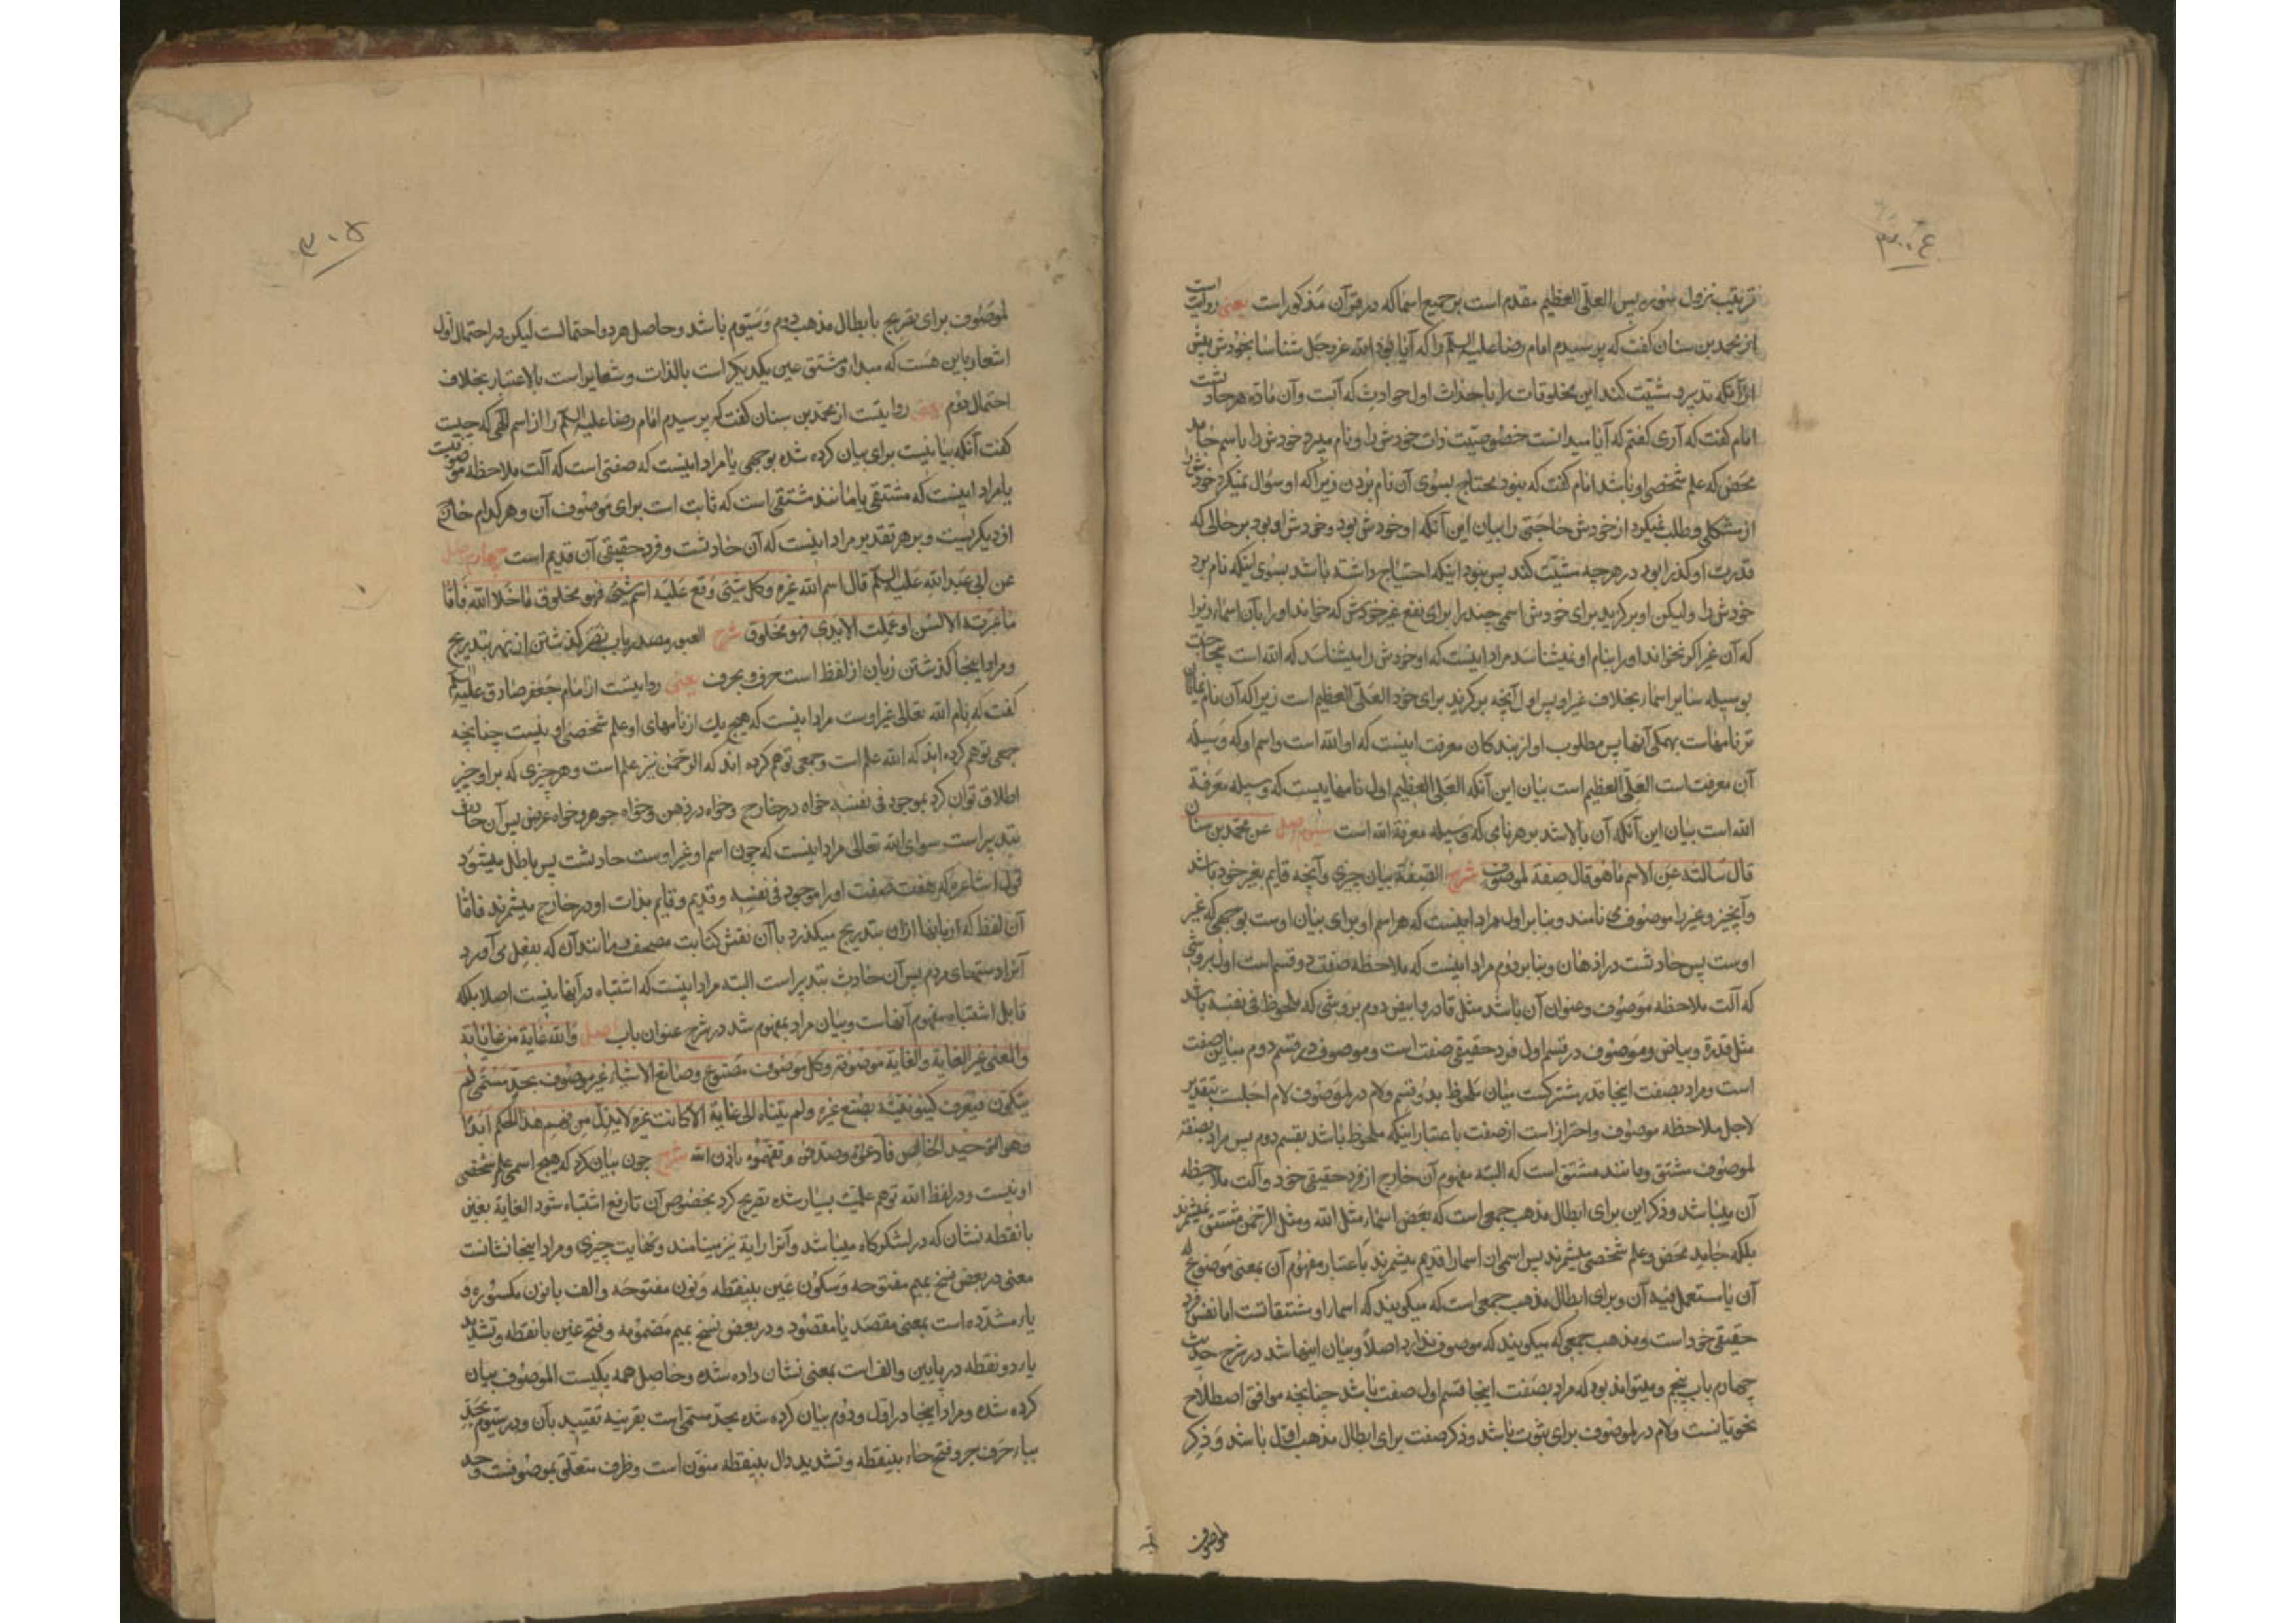 ۳۰۴
ترتیب نزول سوره پس العلی العظیم مقدم است بر جمیع اسما که در قرآن مذکور است یعنی روایت است
از محمد بن سنان گفت که پرسیدم امام رضا علیه السلم را که آیا بود الله عز و جل شناسا بخودش پیش
از آنکه تدبیر و مشیّت کند این مخلوقات را باحداث اول حوادث که آبت و آن ماده هر حادثست
امام گفت که آری گفتم که آیا میدانست خصوصیّت ذات خودش را و نام میبرد خودش را باسم جامد
محض که علم شخصی او باشد امام گفت که نبود محتاج بسوی آن نام بردن زیرا که او سؤال نمیکرد خودش را
از مشکلی و طلب نمیکرد از خودش حاجتی را بیان این آنکه او خودش بود و خودش او بود بر حالی که
قدرت او کذرا بود در هر چه مشیّت کند پس نبود اینکه احتیاج داشته باشد بسوی اینکه نام برد
خودش را و لیکن او برگزید برای خودش اسمی چند را برای نفع غیر خودش که خواند او را بآن اسماء زیرا
که آن غیر اگر نخواند او را بنام او نمیشناسد مراد اینست که او خودش را میشناسد که الله است بحت
بوسیله سایر اسماء بخلاف غیر او پس اول آنچه برگزید برای خود العلی العظیم است زیرا که آن نام
تر نامهاست بهمکی آنها پس مطلوب او از بندکان معرفت اینست که او الله است و اسم او که وسیله
آن معرفت است العلی العظیم است بیان این آنکه العلی العظیم اول نامهاییست که وسیله معرفة
الله است بیان این آنکه آن بالا شد بر هر نامی که وسیله معرفة الله است سیوم اصل عن محمد بن سنان
قال سالته عن الاسم ما هو قال صفة لموصوف شرح الصفة بیان چیزی و آنچه قایم بغیر خود باشد
و آنچیز و غیر را موصوف می نامند و بنا بر اول مراد اینست که هر اسم او برای بیان اوست بوجهی که غیر
اوست پس حادثست در اذهان و بنا بر دوم مراد اینست که ملاحظه صفت دو قسم است اول بروشی
که آلت ملاحظه موصوف و عنوان آن باشد مثل قادر و ابیض دوم بروشی که ملحوظ فی نفسه باشد
مثل قدرة و بیاض و موصوف در قسم اول فرد حقیقی صفت است و موصوف در قسم دوم مباین صفت
است و مراد بصفت اینجا قدر مشترکست میان ملحوظ بدو قسم و لام در لموصوف لام اجلست بتقدیر
لاجل ملاحظه موصوف و احتراز است از صفت باعتبار اینکه ملحوظ باشد بقسم دوم پس مراد بصفة
لموصوف مشتق و مانند مشتق است که البته مفهوم آن خارج از فرد حقیقی خود و آلت ملاحظه
آن میباشد و ذکر این برای ابطال مذهب جمعی است که بعض اسماء مثل الله و مثل الرحمن مشتق نمیشمرند
بلکه جامد محض و علم شخصی میشمرند پس اسمی از اسما را قدیم میشمرند باعتبار مفهوم آن بمعنی موضوع له
آن یا مستعمل فیه آن و برای ابطال مذهب جمعی است که میکویند که اسماء او مشتقاتست اما نفس فرد
حقیقی خود است و مذهب جمعی که میکویند که موصوف ندارد اصلاً و بیان اینها شد در شرح حدیث
چهارم باب پنجم و میتواند بود که مراد بصفت اینجا قسم اول صفت باشد چنانچه موافق اصطلاح
نحویانست و لام در لموصوف برای ثبوت باشد و ذکر صفت برای ابطال مذهب اول باشد و ذکر
لموصوف
۳۰۵
لموصوف برای تصریح بابطال مذهب دوم و سیوم باشد و حاصل هر دو احتمالست لیکن در احتمال اول
اشعار باین هست که مبدا و مشتق عین یکدیکر است بالذات و متغایر است بالاعتبار بخلاف
احتمال دوم یعنی روایتست از محمد بن سنان گفت که پرسیدم امام رضا علیه السلم را از اسم الهی که چیست
گفت آنکه بیانیست برای بیان کرده شده بوجهی یا مراد اینست که صفتی است که آلت ملاحظه موصوفیست
یا مراد اینست که مشتقی یا مانند مشتقی است که ثابت است برای موصوف آن و هر کدام خارج
از دیکریست و بر هر تقدیر مراد اینست که آن حادثست و فرد حقیقی آن قدیم است چهارم اصل
عن ابی عبد الله علیه السلم قال اسم الله غیره و کل شیء وقع علیه اسم شیء فهو مخلوق ما خلا الله فاما
ما عبرته الالسن او عملت الایدی فهو مخلوق شرح العبور مصدر باب نصر کذشتن از نهر بتدریج
و مراد اینجا کذشتن زبان از لفظ است حرف بحرف یعنی روایتست از امام جعفر صادق علیه السلم
گفت که نام الله تعالی غیر اوست مراد اینست که هیچ یک از نامهای او علم شخصی او نیست چنانچه
جمعی توهم کرده اند که الله علم است و جمعی توهم کرده اند که الرحمن نیز علم است و هر چیزی که بر او چیز
اطلاق توان کرد بموجود فی نفسه خواه در خارج و خواه در ذهن و خواه جوهر و خواه عرض پس آن حادث
بتدبیر است سوای الله تعالی مراد اینست که چون اسم او غیر اوست حادثست پس باطل میشود
قول اشاعره که هفت صفت او را موجود فی نفسه و قدیم و قایم بذات او در خارج میشمرند فاما
آن لفظ که زبانها از ان بتدریج میکذرد یا آن نقش کتابت مصحف و مانند آن که بفعل می آورد
آنرا دستهای مردم پس آن حادث بتدبیر است البته مراد اینست که اشتباه در آنها نیست اصلا بلکه
قابل اشتباه مفهوم آنهاست و بیان مراد بمفهوم شد در شرح عنوان باب اصل و الله غایة من غایاته
و المعنی غیر الغایة و الغایة موصوفة و کل موصوف مصنوع و صانع الاشیاء غیر موصوف بحد مسمی لم
یتکون فیعرف کینونیته بصنع غیره و لم یتناه الی غایة الا کانت غیره لا یذل من فهم هذا الحکم ابدا
و هو التوحید الخالص فادعوه و صدقوه و تفهموه باذن الله شرح چون بیان کرد که هیچ اسمی علم شخصی
او نیست و در لفظ الله توهم علمیّت بسیار شده تصریح کرد بخصوص آن تا رفع اشتباه شود الغایة بغین
با نقطه نشان که در لشکرکاه میباشد و آنرا رایة نیز مینامند و نهایت چیزی و مراد اینجا نشانست
معنی در بعض نسخ بمیم مفتوحه و سکون عین بینقطه و نون مفتوحه و الف یا نون مکسوره و
یاء مشدده است بمعنی مقصد یا مقصود و در بعض نسخ بمیم مضمومه و فتح غین با نقطه و تشدید
یاء دو نقطه در پایین و الف است بمعنی نشان داده شده و حاصل همه یکیست الموصوف بیان
کرده شده و مراد اینجا در اول و دوم بیان کرده شده بحد مسمی است بقرینه تقیید بآن و در سیوم بحد
بباء حرف جر و فتح حاء بینقطه و تشدید دال بینقطه منون است و ظرف متعلق بموصوفست و حد